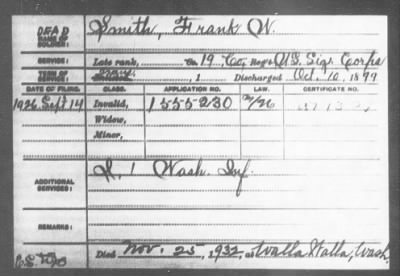 DEAD
NAME OF SOLDIER: Smith, Frank W.
SERVICE: Late rank, Co. 19 Co, Reg't U.S. Sig. Corps
TERM OF SERVICE: , 1 Discharged Oct. 10, 1899
DATE OF FILING. CLASS. APPLICATION NO. LAW. CERTIFICATE NO.
1926 Sept 14 Invalid, 1555230
Widow,
Minor,
ADDITIONAL SERVICES: H, 1 Wash. Inf.
REMARKS:
Died Nov. 25, 1932, at Walla Walla, Wash.